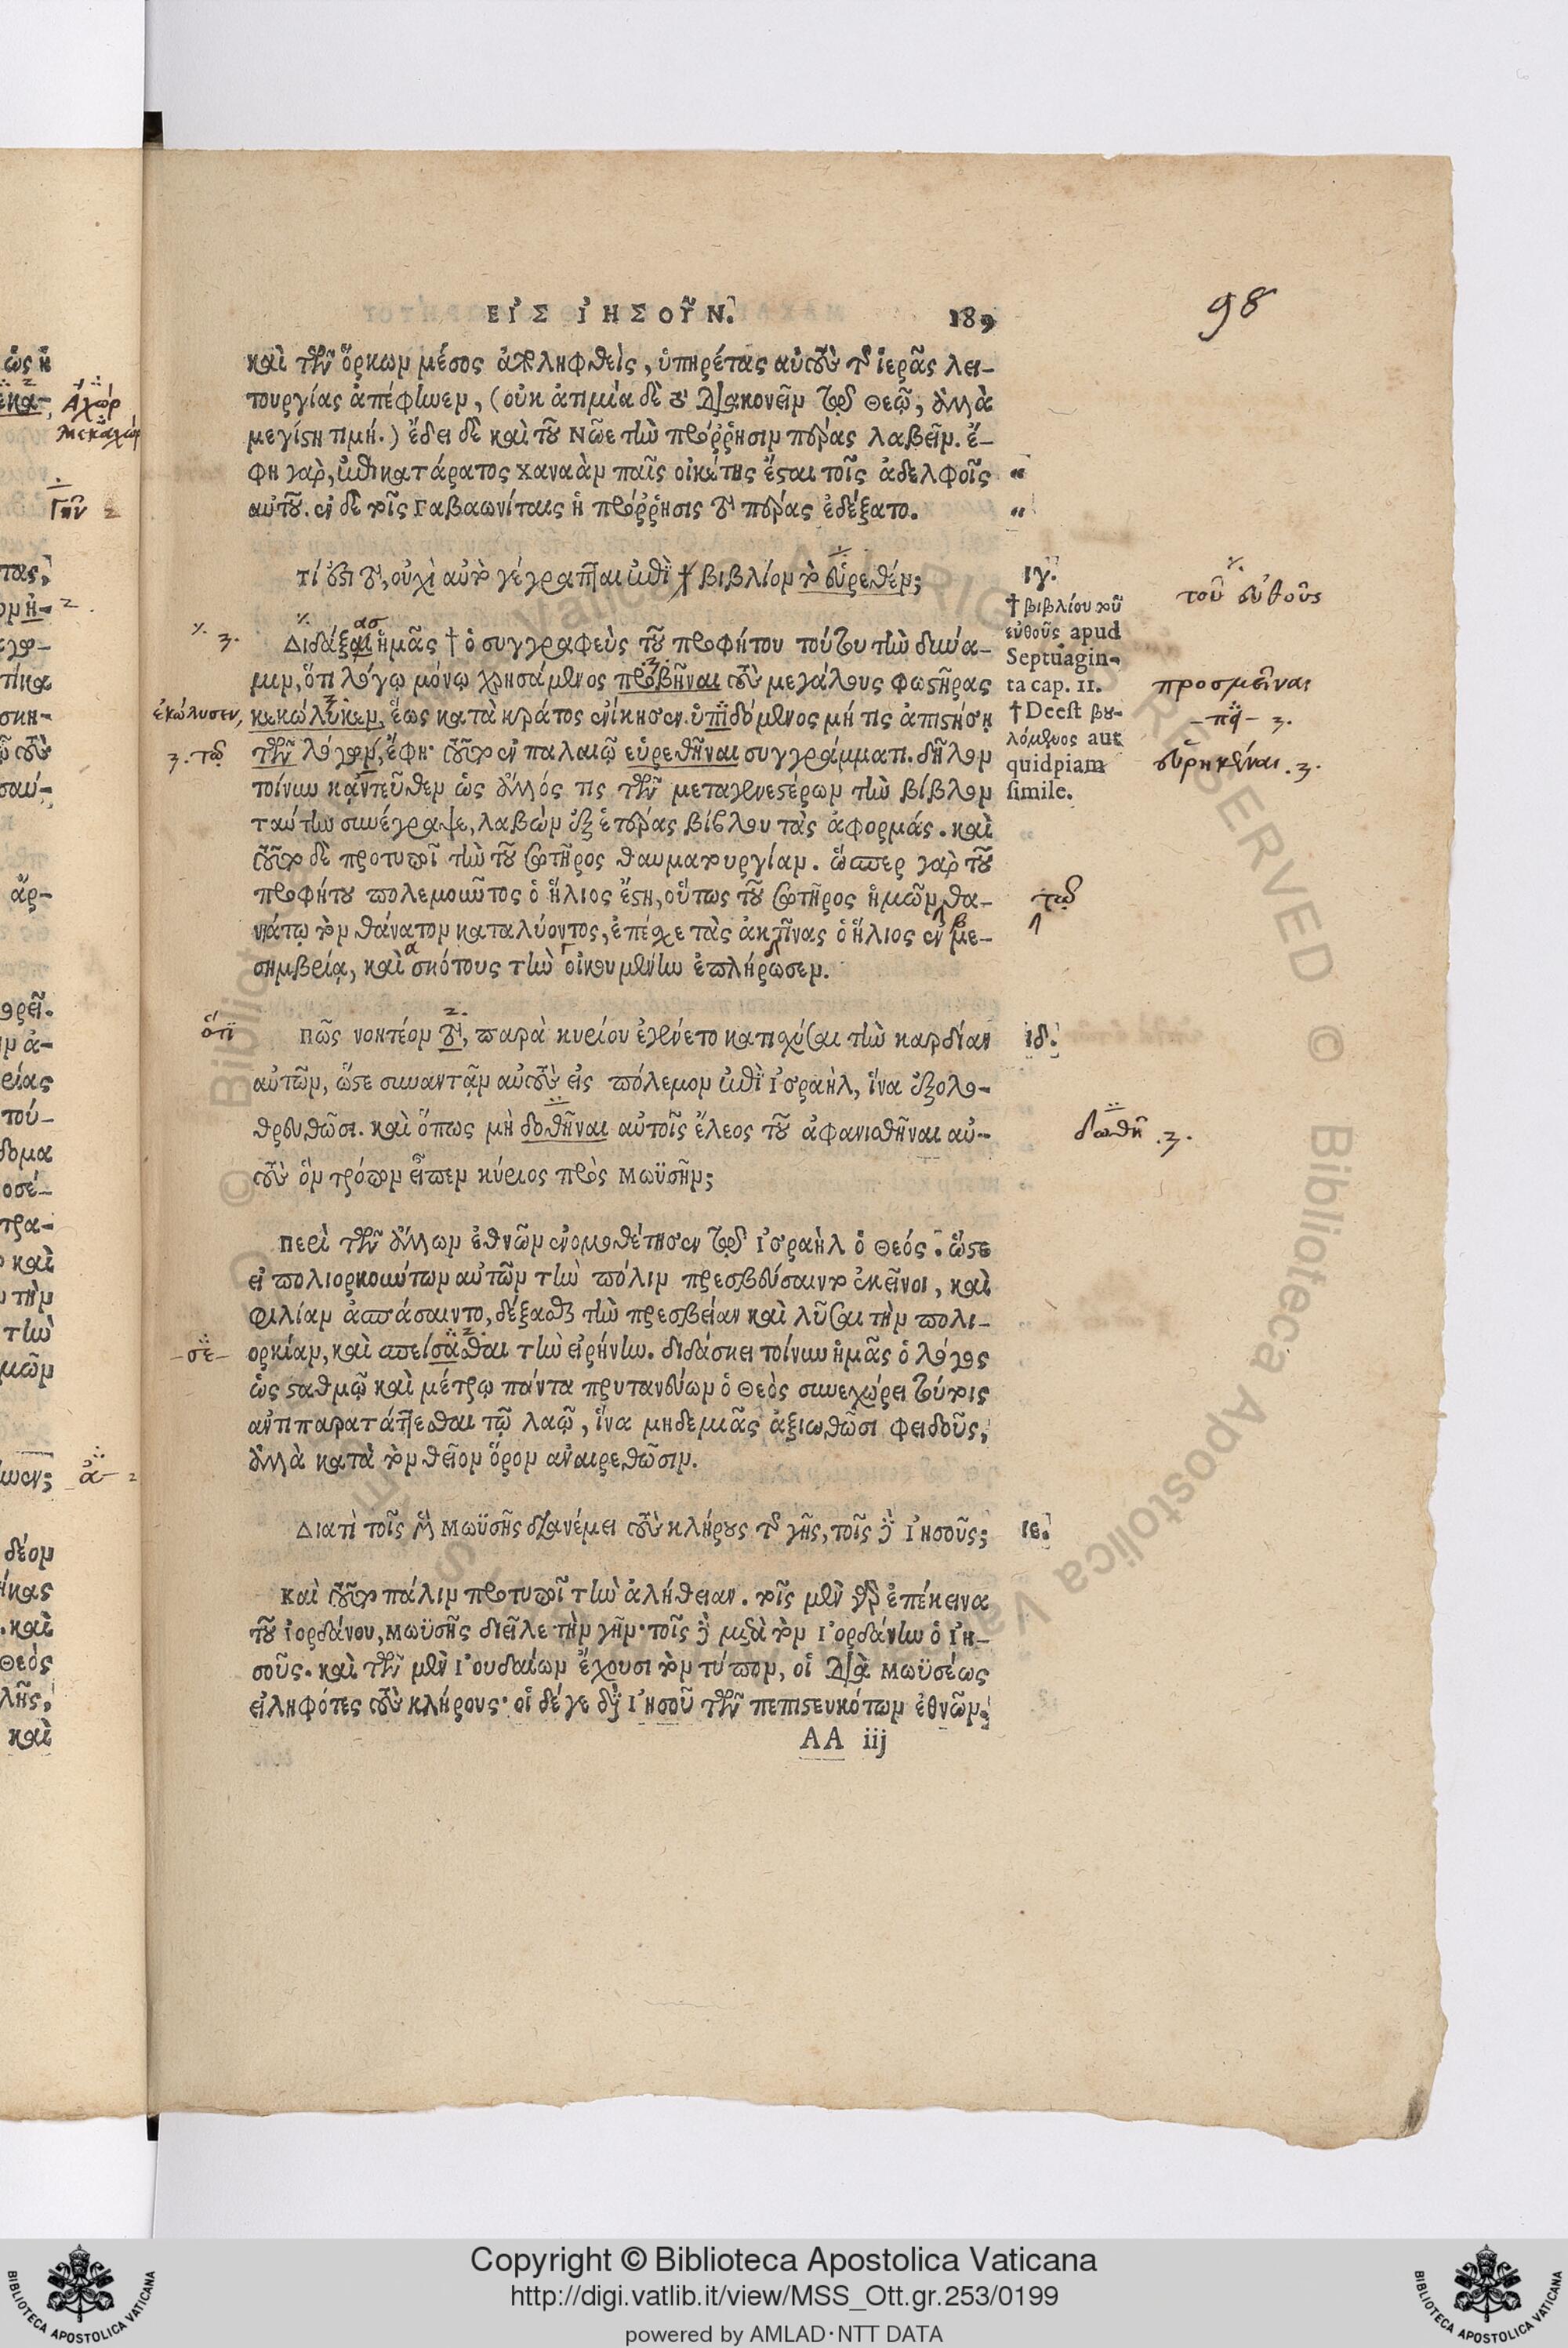 ΕἸΣ ἸΗΣΟΥ͂Ν.
189
98
καὶ τῶν ὅρκων μέσος ἀπολειφθεὶς, ὑπηρέτας αὐτοὺς τῆς ἱερᾶς λει-
τουργίας ἀπέφηνεν, (οὐκ ἀτιμία δὲ τὸ διακονεῖν τῷ Θεῷ, ἀλλὰ
μεγίστη τιμή.) ἔδει δὲ καὶ τοῦ Νῶε τὴν πρόῤῥησιν πέρας λαβεῖν. ἔ-
φη γὰρ, ἐπικατάρατος Χαναὰν παῖς οἰκέτης ἔσται τοῖς ἀδελφοῖς
αὐτοῦ. ἐν δὲ τοῖς Γαβαωνίταις ἡ πρόῤῥησις τὸ πέρας ἐδέξατο.
Τί ἐστι τὸ, οὐχὶ αὐτὸ γέγραπται ἐπὶ † βιβλίον τὸ εὑρεθέν;
ιγ.
† βιβλίου τοῦ
εὐθοῦς apud
Septuagin-
ta cap. 11.
† Deest βου-
λόμενος aut
quidpiam
simile.
τοῦ εὐθοῦς
Διδάξαι ἡμᾶς † ὁ συγγραφεὺς τοῦ προφήτου τούτου τὴν δύνα-
μιν, ὅτι λόγῳ μόνῳ χρησάμενος προβῆναι τοὺς μεγάλους φωστῆρας
προσμεῖναι
ἐκώλυσεν,
κεκώλυκεν, ἕως κατὰ κράτος ἐνίκησεν. ὑπιδόμενος μή τις ἀπιστήσῃ
τῶν λόγων, ἔφη· τοῦτο ἐν παλαιῷ εὑρεθῆναι συγγράμματι. δῆλον
εὑρηκέναι .3.
3. τῷ
τοίνυν κἀντεῦθεν ὡς ἄλλός τις τῶν μεταγενεστέρων τὴν βίβλον
ταύτην συνέγραψε, λαβὼν ἐξ ἑτέρας βίβλου τὰς ἀφορμάς. καὶ
τοῦτο δὲ προτυποῖ τὴν τοῦ σωτῆρος θαυματουργίαν. ὥσπερ γὰρ τοῦ
προφήτου πολεμοῦντος ὁ ἥλιος ἔστη, οὕτως τοῦ σωτῆρος ἡμῶν θα-
τῷ
νάτῳ τὸν θάνατον καταλύοντος, ἐπέσχε τὰς ἀκτῖνας ὁ ἥλιος ἐν με-
σημβρίᾳ, καὶ σκότους τὴν οἰκουμένην ἐπλήρωσεν.
ὅτι
Πῶς νοητέον τὸ, παρὰ κυρίου ἐγένετο κατισχύσαι τὴν καρδίαν
ιδ.
αὐτῶν, ὥστε συναντᾷν αὐτοὺς εἰς πόλεμον ἐπὶ Ἰσραὴλ, ἵνα ἐξολο-
θρευθῶσι. καὶ ὅπως μὴ δοθῆναι αὐτοῖς ἔλεος τοῦ ἀφανισθῆναι αὐ-
δωθῆ .3.
τοὺς ὃν τρόπον εἶπεν κύριος πρὸς Μωϋσῆν;
Περὶ τῶν ἄλλων ἐθνῶν ἐνομοθέτησεν τῷ Ἰσραὴλ ὁ Θεός. ὥστε
εἰ πολιορκούντων αὐτῶν τὴν πόλιν πρεσβεύσαιντο ἐκεῖνοι, καὶ
φιλίαν ἀσπάσαιντο, δέξασθαι τὴν πρεσβείαν καὶ λῦσαι τὴν πολι-
-σε-
ορκίαν, καὶ σπείσασθαι τὴν εἰρήνην. διδάσκει τοίνυν ἡμᾶς ὁ λόγος
ὡς σταθμῷ καὶ μέτρῳ πάντα πρυτανεύων ὁ Θεὸς συνεχώρει τούτοις
ἀντιπαρατάττεσθαι τῷ λαῷ, ἵνα μηδεμιᾶς ἀξιωθῶσι φειδοῦς,
ἀλλὰ κατὰ τὸν θεῖον ὅρον ἀναιρεθῶσιν.
Διατὶ τοῖς μὲν Μωϋσῆς διανέμει τοὺς κλήρους τῆς γῆς, τοῖς δὲ Ἰησοῦς;
ιε.
Καὶ τοῦτο πάλιν προτυποῖ τὴν ἀλήθειαν. τοῖς μὲν γὰρ ἐπέκεινα
τοῦ Ἰορδάνου, Μωϋσῆς διεῖλε τὴν γῆν· τοῖς δὲ μετὰ τὸν Ἰορδάνην ὁ Ἰη-
σοῦς. καὶ τῶν μὲν Ἰουδαίων ἔχουσι τὸν τύπον, οἱ διὰ Μωϋσέως
εἰληφότες τοὺς κλήρους· οἱ δέ γε διὰ Ἰησοῦ τῶν πεπιστευκότων ἐθνῶν.
AA iij
Copyright © Biblioteca Apostolica Vaticana
http://digi.vatlib.it/view/MSS_Ott.gr.253/0199
powered by AMLAD·NTT DATA